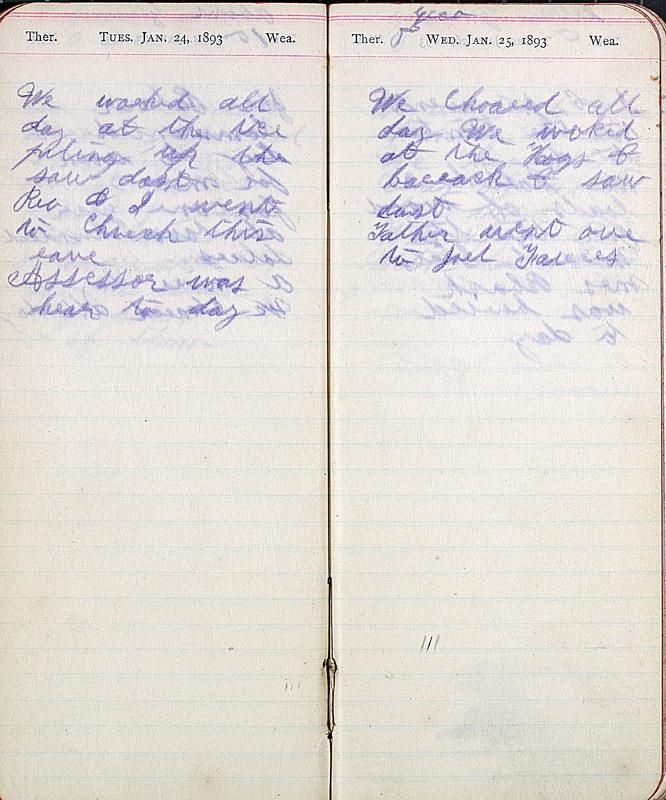 Ther. TUES. JAN. 24, 1893 Wea.
We worked all
day at the ice
pileing up the
saw dost
Rev & I went
to Chuech this
eave
Assessor was
hear to day
Ther. WED. JAN. 25, 1893 Wea.
We Choared all
day We worked
at the Hogs &
& saw
dust
Father went ove
to Joel